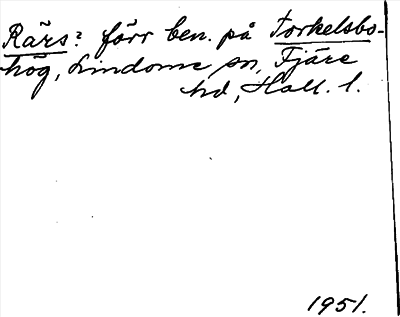 Rärs? förr ben. på Torkelsbo-
hög, Lindome sn, Fjäre
hd, Hall. l.
1951.